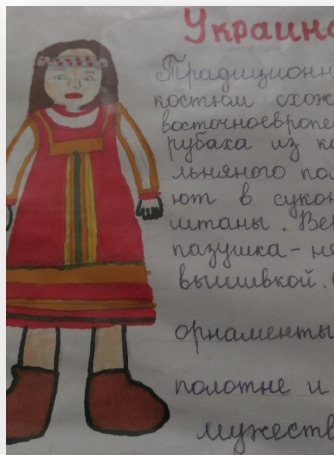 Украинс
Традиционн
костюм схож
восточноевропе
рубаха из ко
льняного пол
ют в сукон
штаны. Ве
пазушка - не
вышивкой.
орнаменты
полотне и
мужеств